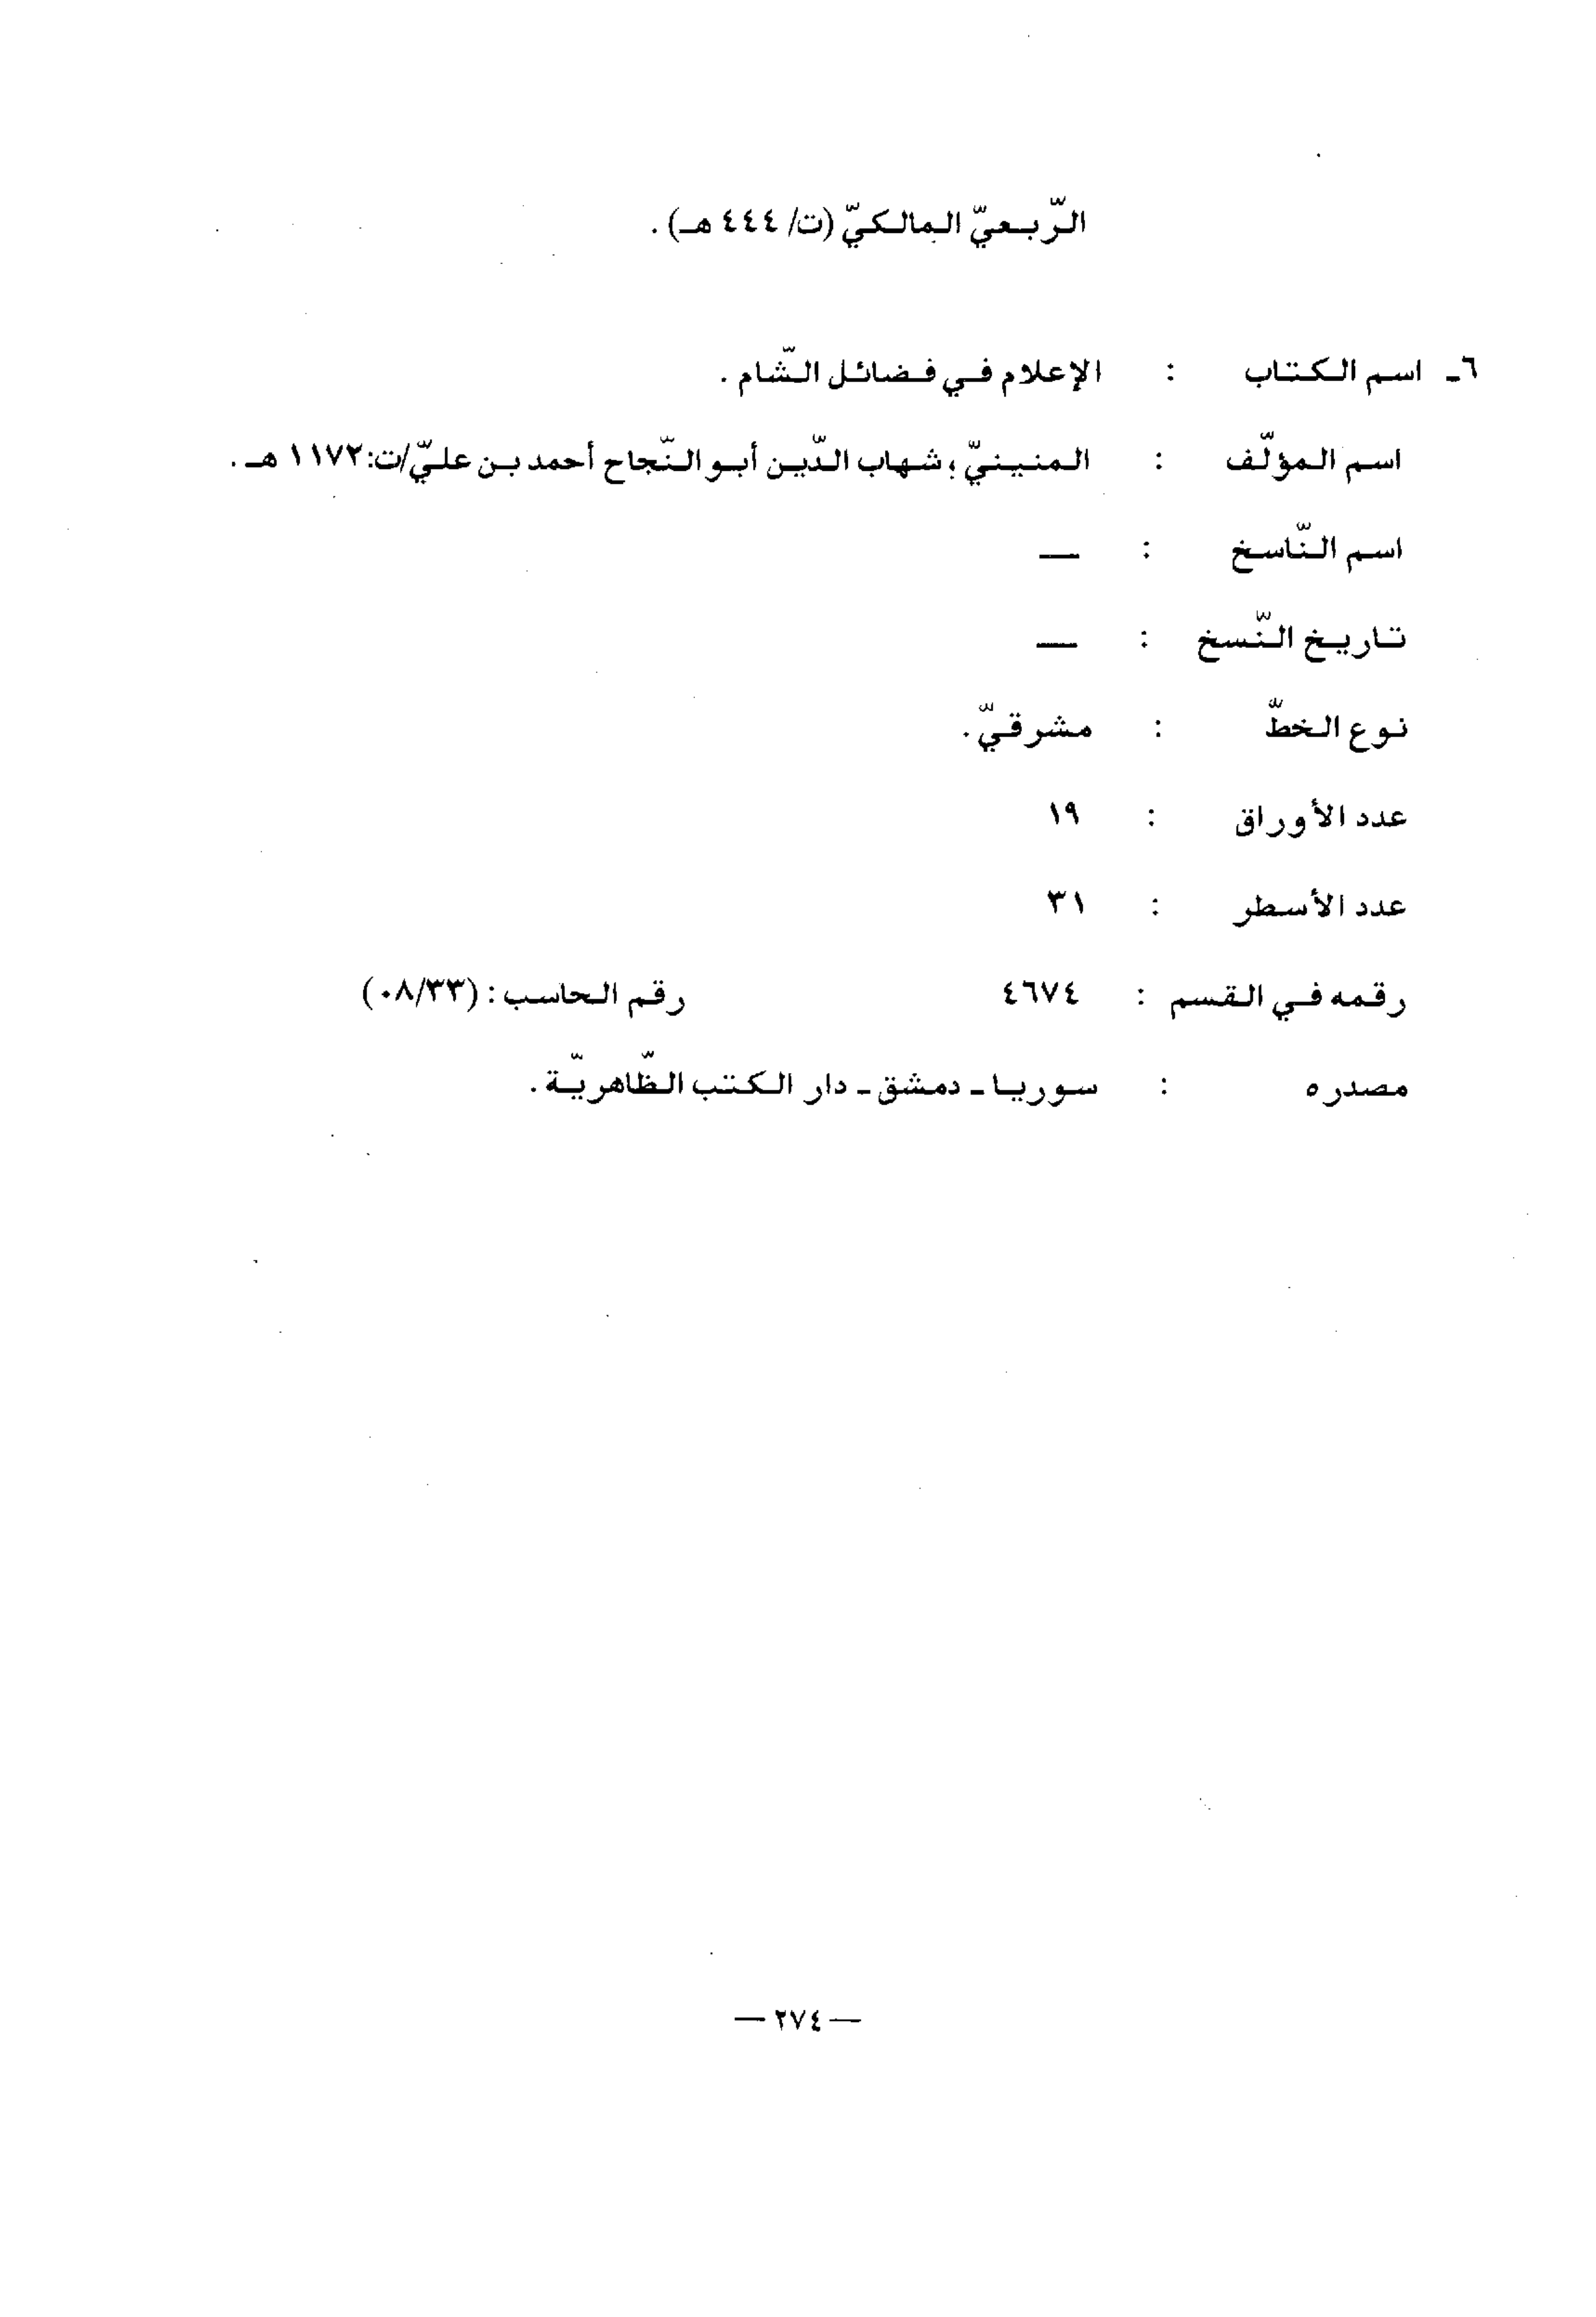 الرّبعيّ المالكيّ (ت/ ٤٤٤ هـ) .
٦ـ اسم الكتاب : الإعلام في فضائل الشّام .
اسم المؤلّف : المنينيّ، شهاب الدّين أبو النّجاح أحمد بن عليّ/ت:١١٧٢ هـ .
اسم النّاسخ : —
تاريخ النّسخ : —
نوع الخطّ : مشرقيّ .
عدد الأوراق : ١٩
عدد الأسطر : ٣١
رقمه في القسم : ٤٦٧٤ رقم الحاسب : (٠٨/٣٣)
مصدره : سوريا ـ دمشق ـ دار الكتب الظّاهريّة .
— ٢٧٤ —